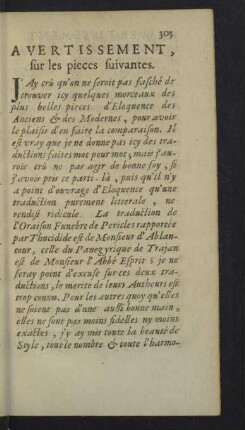 303
AVERTISSEMENT,
sur les pieces suivantes.
J'Ay crû qu'on ne seroit pas fasché de
trouver icy quelques morceaux des
plus belles pieces d'Eloquence des
Anciens & des Modernes, pour avoir
le plaisir d'en faire la comparaison. Il
est vray que je ne donne pas icy des tra-
ductions faites mot pour mot, mais j'au-
rois crû ne pas agir de bonne foy, si
j'avois pris ce parti-là, puis qu'il n'y
a point d'ouvrage d'Eloquence qu'une
traduction purement litterale, ne
rendist ridicule. La traduction de
l'Oraison Funebre de Pericles rapportée
par Thucidide est de Monsieur d'Ablan-
cour, celle du Panegyrique de Trajan
est de Monsieur l'Abbé Esprit; je ne
feray point d'excuse sur ces deux tra-
ductions, le merite de leurs Autheurs est
trop connu. Pour les autres quoy qu'elles
ne soient pas d'une aussi bonne main,
elles ne sont pas moins fidelles ny moins
exactes, j'y ay mis toute la beauté de
Style, tout le nombre & toute l'harmo-